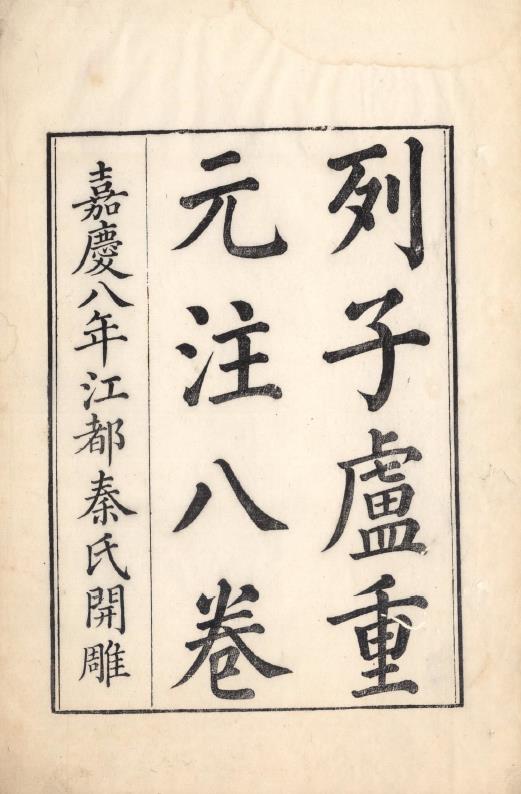 列子盧重
元注八卷
嘉慶八年江都秦氏開雕